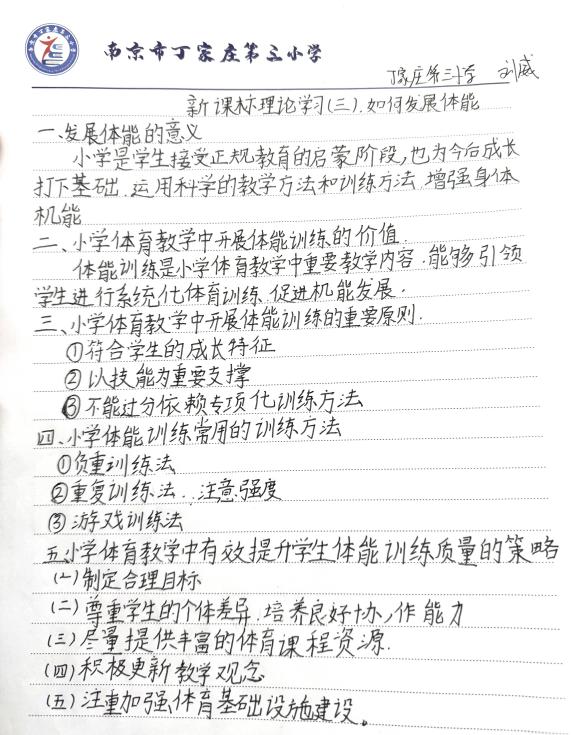 南京市丁家庄第三小学
丁家庄第三小学 刘威
新课标理论学习(三).如何发展体能
一、发展体能的意义
小学是学生接受正规教育的启蒙阶段,也为今后成长
打下基础.运用科学的教学方法和训练方法.增强身体
机能
二、小学体育教学中开展体能训练的价值.
体能训练是小学体育教学中重要教学内容.能够引领
学生进行系统化体育训练.促进机能发展.
三、小学体育教学中开展体能训练的重要原则.
①符合学生的成长特征
②以技能为重要支撑
③不能过分依赖专项化训练方法
四、小学体能训练常用的训练方法
①负重训练法
②重复训练法..注意强度
③游戏训练法
五、小学体育教学中有效提升学生体能训练质量的策略
(一)制定合理目标
(二)尊重学生的个体差异.培养良好协作能力
(三)尽量提供丰富的体育课程资源.
(四)积极更新教学观念
(五)注重加强体育基础设施建设。